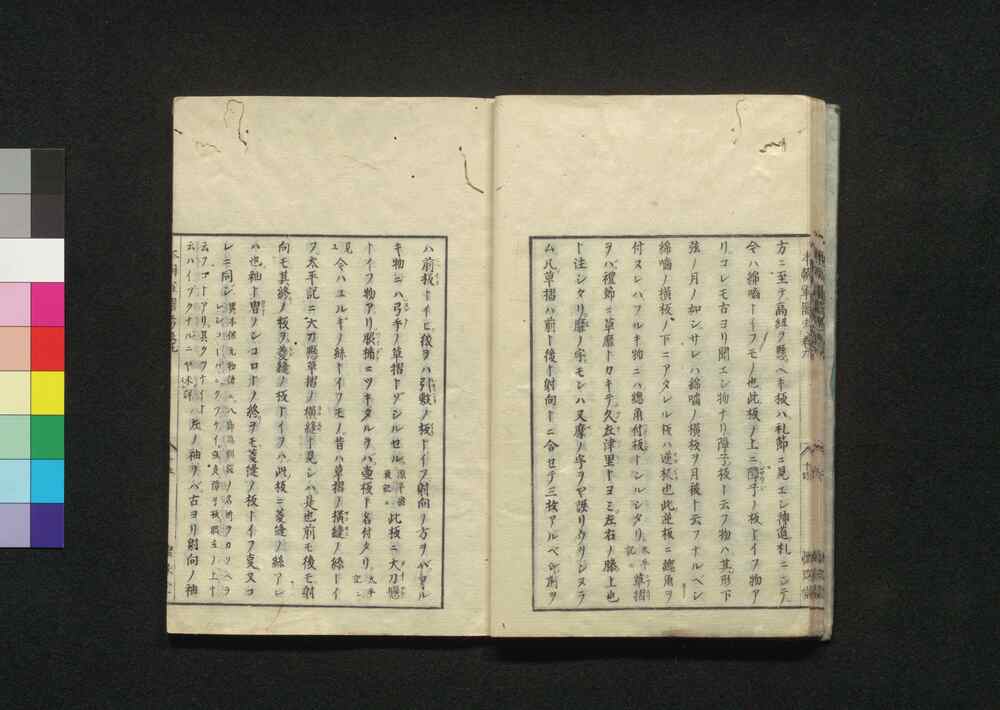 方ニ至テ高紐ヲ懸ヘキ板ハ札節ニ見エシ伸道札ニシテ
今ハ綿嚙トイフモノ也此板ノ上ニ障子ノ板トイフ物ア
リコレモ古ヨリ聞エシ物ナリ障子ノ板ト云フ物ハ其形下
弦ノ月ノ如シサレハ綿嚙ノ横板ヲ月後ト云フナルベシ
綿嚙ノ横板ノ下ニアタレル板ハ逆板也此逆板ニ總角ヲ
付ヌレハフルキ物ニハ總角付板トシルシタリ 太平記 草摺
ヲハ禮節ニ草靡トカキテ久左津里トヨミ左右ノ膝上也
ト注シタリ靡ノ字モシハ又摩ノ字ヲヤ誤リウツシヌラ
ム凡草摺ハ前ト後ト射向トニ合セテ三枚アルベシ前ヲ
ハ前板トイヒ後ヲハ引敷ノ板トイフ射向ノ方ヲバフル
キ物ニハ弓手ノ草摺トゾシルセル 源平盛衰記 此板ニ大刀懸
トイフ物アリ脹楯ニツキタルヲハ壷板ト名付タリ 太平記ニ
見ユ 今ハユルギノ絲トイフモノ昔ハ草摺ノ横縫ノ絲トイ
フ太平記ニ大刀懸草摺ノ横縫ト見シハ是也前モ後モ射
向モ其終ノ板ヲ菱縫ノ板トイフハ此板ニ菱縫ノ絲アレ
ハ也袖ト冑ノシコロトノ終ヲモ菱縫ノ板トイフ事又コ
レニ同シ
云フコトアリ其クワケイト
云ハイブクナルニヤ未詳 左ノ袖ヲバ古ヨリ射向ノ袖